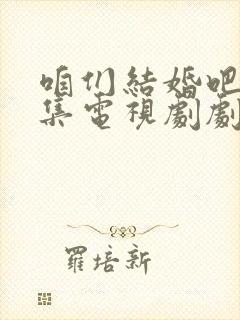 咱们結婚吧
集電視劇劇
羅培新